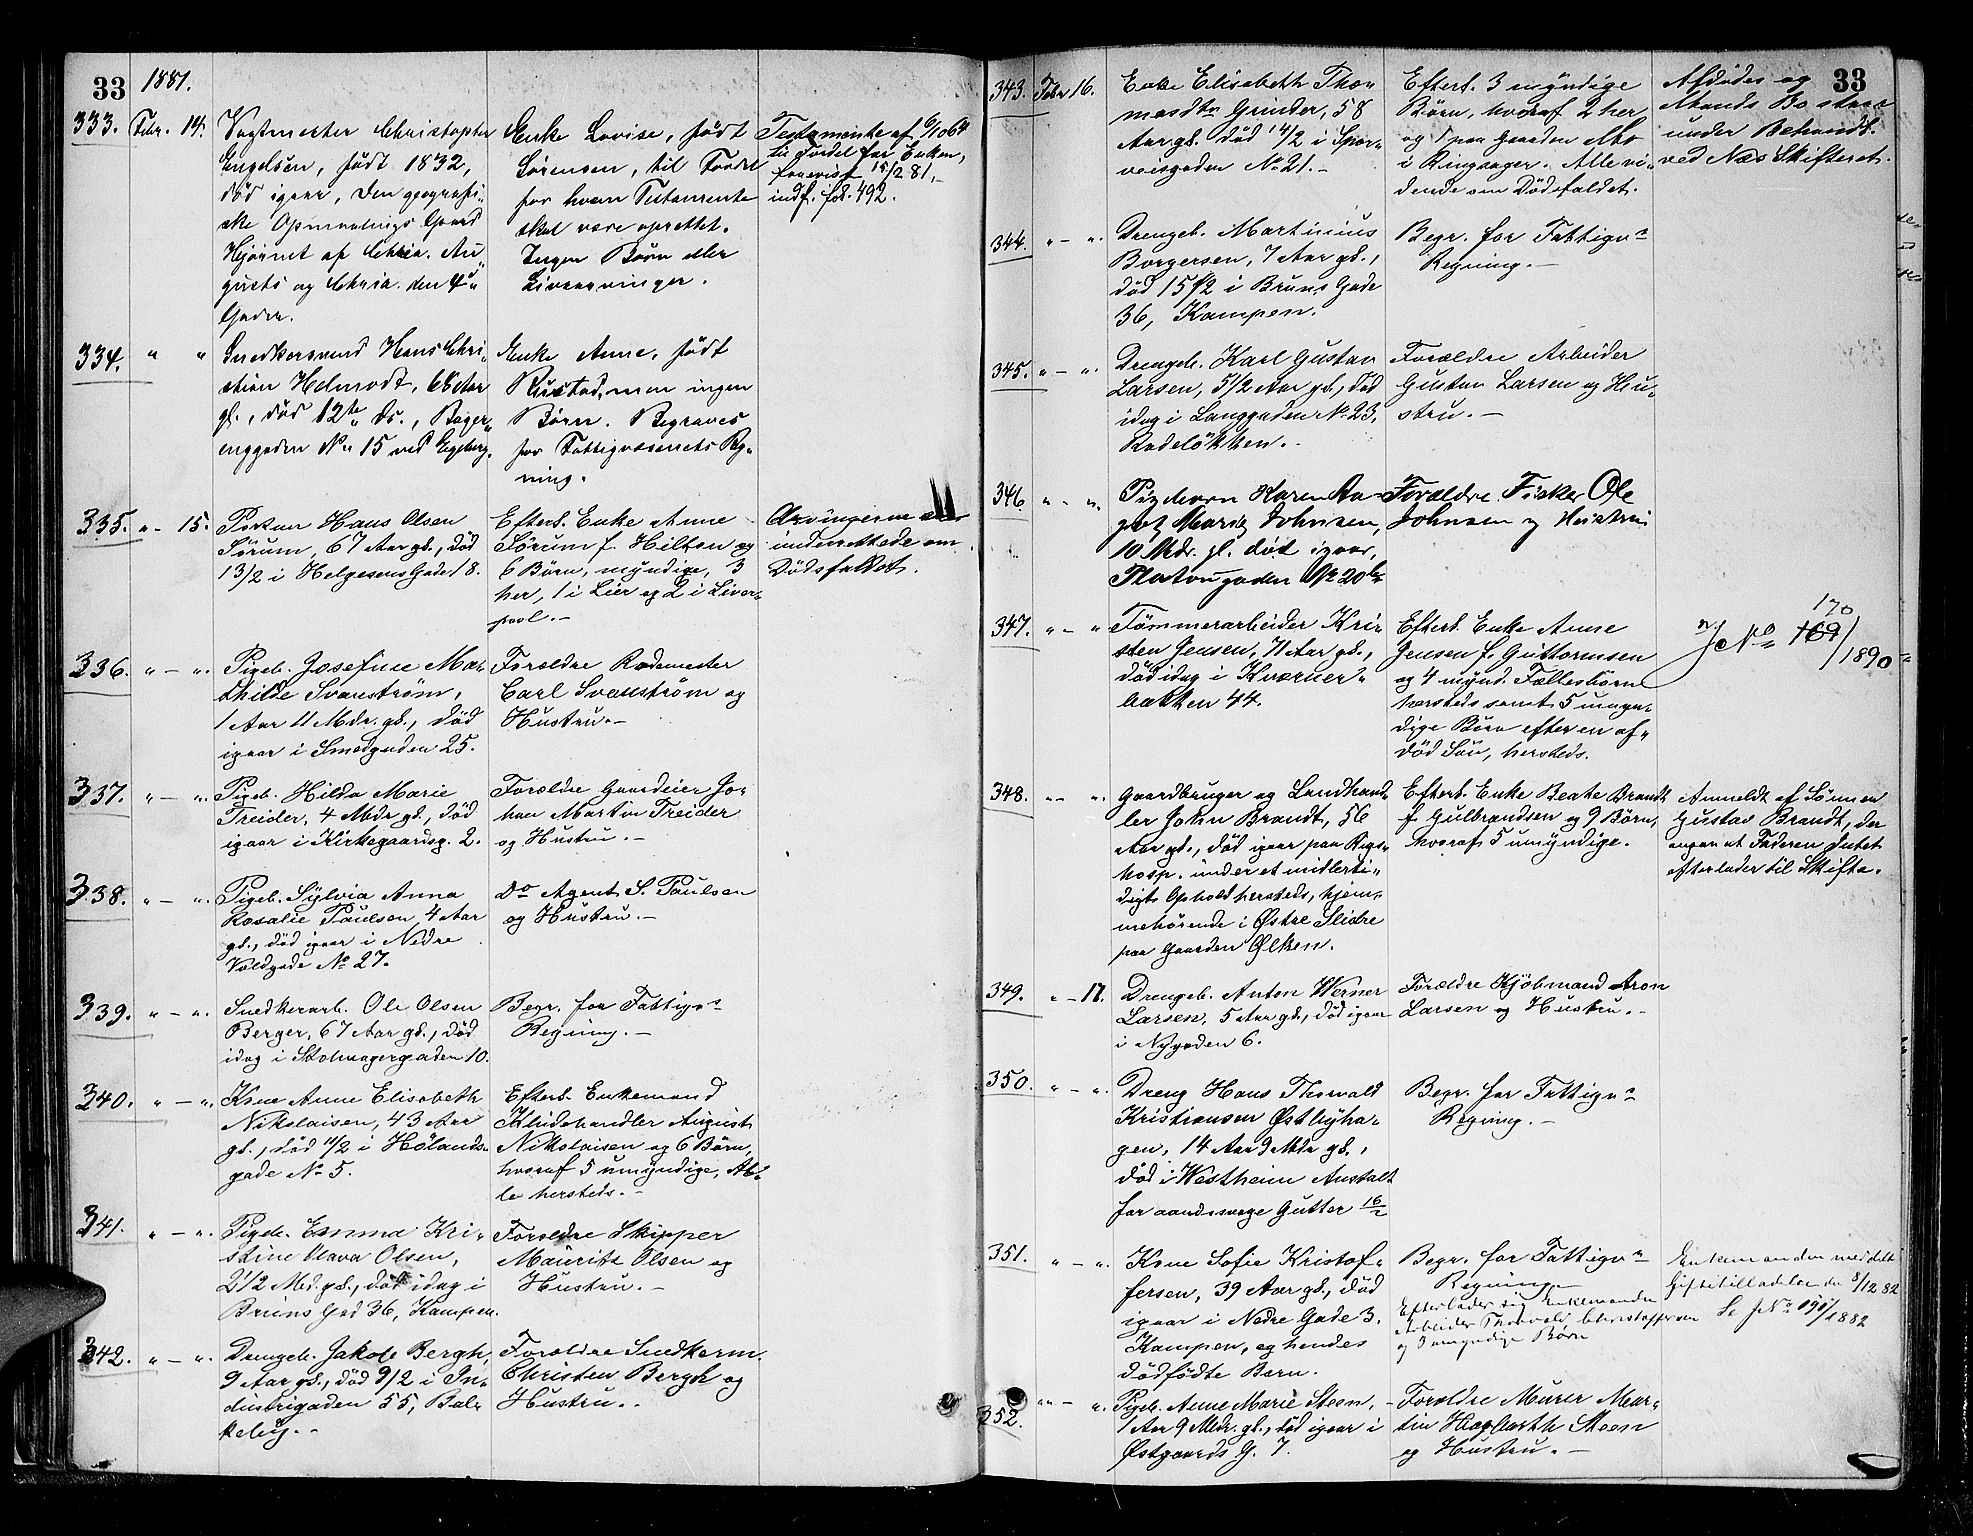 33
1881.
333. Febr. 14.
Vagtmester Christopher
Engelsen, født 1832,
død igaar, Den geografi-
ske Opmaalings Gaard
Hjørnet af Chria. Au-
gusts og Chria. den 4"
Gader.
Enke Lovise, født
Sørensen, til Fordel
for hvem Testamente
skal være oprettet.
Ingen Børn eller
Livsarvinger.
Testamente af 6/10 64
til Fordel for Enken,
forevist 15/2 81,-
indf. fol. 492.
334. " "
Snedkersvend Hans Chri-
stian Helmodt, 66 Aar
gl., død 12te ds., Bøger-
enggaden No 15 ved Egeberg.
Enke Anne, født
Rustad, men ingen
Børn. Begraves
for Fattigvæsenets Reg-
ning.
335. " - 15.
Portner Hans Olsen
Sørum, 67 Aar gl., død
13/2 i Helgesens Gade 18.
Efterl. Enke Anne
Sørum f. Hilton og
6 Børn, myndige, 3
her, 1 i Lier og 2 i Liver-
pool. -
Arvingerne ere
underrettede om
Dødsfaldet.
336. " - ".
Pigeb. Josefine Ma-
thilde Svanstrøm,
1 Aar 11 Mdr. gl., død
igaar i Smedgaden 25.
Forældre Rodemester
Carl Svanstrøm og
Hustru. -
337. " - ".
Pigeb. Hilda Marie
Treider, 4 Mdr gl., død
igaar i Kirkegaardsg. 2.
Forældre Gaardeier Jo-
han Martin Treider
og Hustru. -
338. " - ".
Pigeb. Sylvia Anna
Rosalie Paulsen, 4 Aar
gl., død igaar i Nedre
Voldgade No 27.
Do Agent S. Paulsen
og Hustru. -
339. " - ".
Snedkerarb. Ole Olsen
Berger, 67 Aar gl., død
idag i Stolmagergaden 10.
Begr. for Fattigv.s
Regning. -
340. " - ".
Kone Anne Elisabeth
Nikolaisen, 43 Aar
gl., død 11/2 i Hølands-
gade No 5.
Efterl. Enkemand
Klædehandler August
Nikolaisen og 6 Børn,
hvoraf 5 umyndige, Al-
le hersteds. -
341. " - ".
Pigeb. Emma Kri-
stine Olava Olsen,
2 1/2 Md. gl., død idag i
Bruns Gad 36, Kampen.
Forældre Skipper
Mauritz Olsen og
Hustru. -
342. " - ".
Drengeb. Jakob Bergh,
9 Aar gl., død 9/2 i In-
dustrigaden 55, Bal-
keby. -
Forældre Snedkerm.
Christen Bergh og
Hustru. -
33
343. Febr 16.
Enke Elisabeth Tho-
masdtr. Grinder, 58
Aar gl. død 14/2 i Spor-
veisgaden No 21. -
Efterl. 3 myndige
Børn, hvoraf 2 her
og 1 paa Gaarden Mo
i Ringsager. Alle vi-
dende om Dødsfaldet.
Afdødes og
Mands Bo staar
under Behandl.
ved Næs Skifteret.
344. " - ".
Drengeb. Martinius
Borgersen, 7 Aar gl.,
død 15/2 i Bruns Gade
36, Kampen.
Begr. for Fattigv.s
Regning. -
345. " - ".
Drengeb. Karl Gustav
Larsen, 5 1/2 Aar gl., død
idag i Langgaden No 23,
Rodeløkken. -
Forældre Arbeider
Gustav Larsen og Hu-
stru. -
346 " - ".
Pigebarn Karen Au-
gusta Marie Johnsen,
10 Mdr. gl. død igaar,
Platousgaden No 20b.
Forældre. Fisker Ole
Johnsen og Hustru
347. " - "
Tømmerarbeider Kri-
sten Jensen, 71 Aar gl.,
død idag i Kværner-
bakken 44.
Efterl. Enke Anne
Jensen f. Guttormsen
og 4 mynd. Fællesbørn
hersteds samt 5 umyn-
dige Børn efter en af-
død Søn, hersteds.
170
J. No 169/1890
348. " - ".
Gaardbruger og Landhand-
ler John Brandt, 56
Aar gl., død igaar paa Rigs-
hosp. under et midlerti-
digt Ophold hersteds, hjem-
mehørende i Østre Slidre
paa Gaarden Ølken.
Efterl. Enke Beate Brandt
f. Gulbrandsen og 9 Børn,
hvoraf 5 umyndige.
Anmeldt af Sønnen
Gustav Brandt, der
angav at Faderen Intet
efterlader til Skifte.
349. " - 17.
Drengeb. Anton Werner
Larsen, 5 Aar gl., død igaar
i Nygaden 6.
Forældre Kjøbmand Aron
Larsen og Hustru. -
350. " - ".
Dreng Hans Thorvald
Kristiansen Østbyha-
gen, 14 Aar 9 Mdr gl.,
død i Westheim Anstalt
for aandssvage Gutter 16/2
Begr. for Fattigv.s
Regning. -
351. " - ".
Kone Sofie Kristof-
fersen, 39 Aar gl., død
igaar i Nedre Gade 3.
Kampen, og hendes
dødfødte Barn.
Begr. for Fattigv.s
Regning. -
Efterlader sig Enkemanden
Arbeider Thorvald Christoffersen
og 3 umyndige Børn
Enkemanden meddelt
Giftetilladelse den 8/12 82
Se J No 191/1882
352. " - ".
Pigeb. Anne Marie Steen,
1 Aar 9 Mdr. gl., død igaar i
Østgaards G. 7.
Forældre Murer Mar-
tin Hagbarth Steen
og Hustru. -